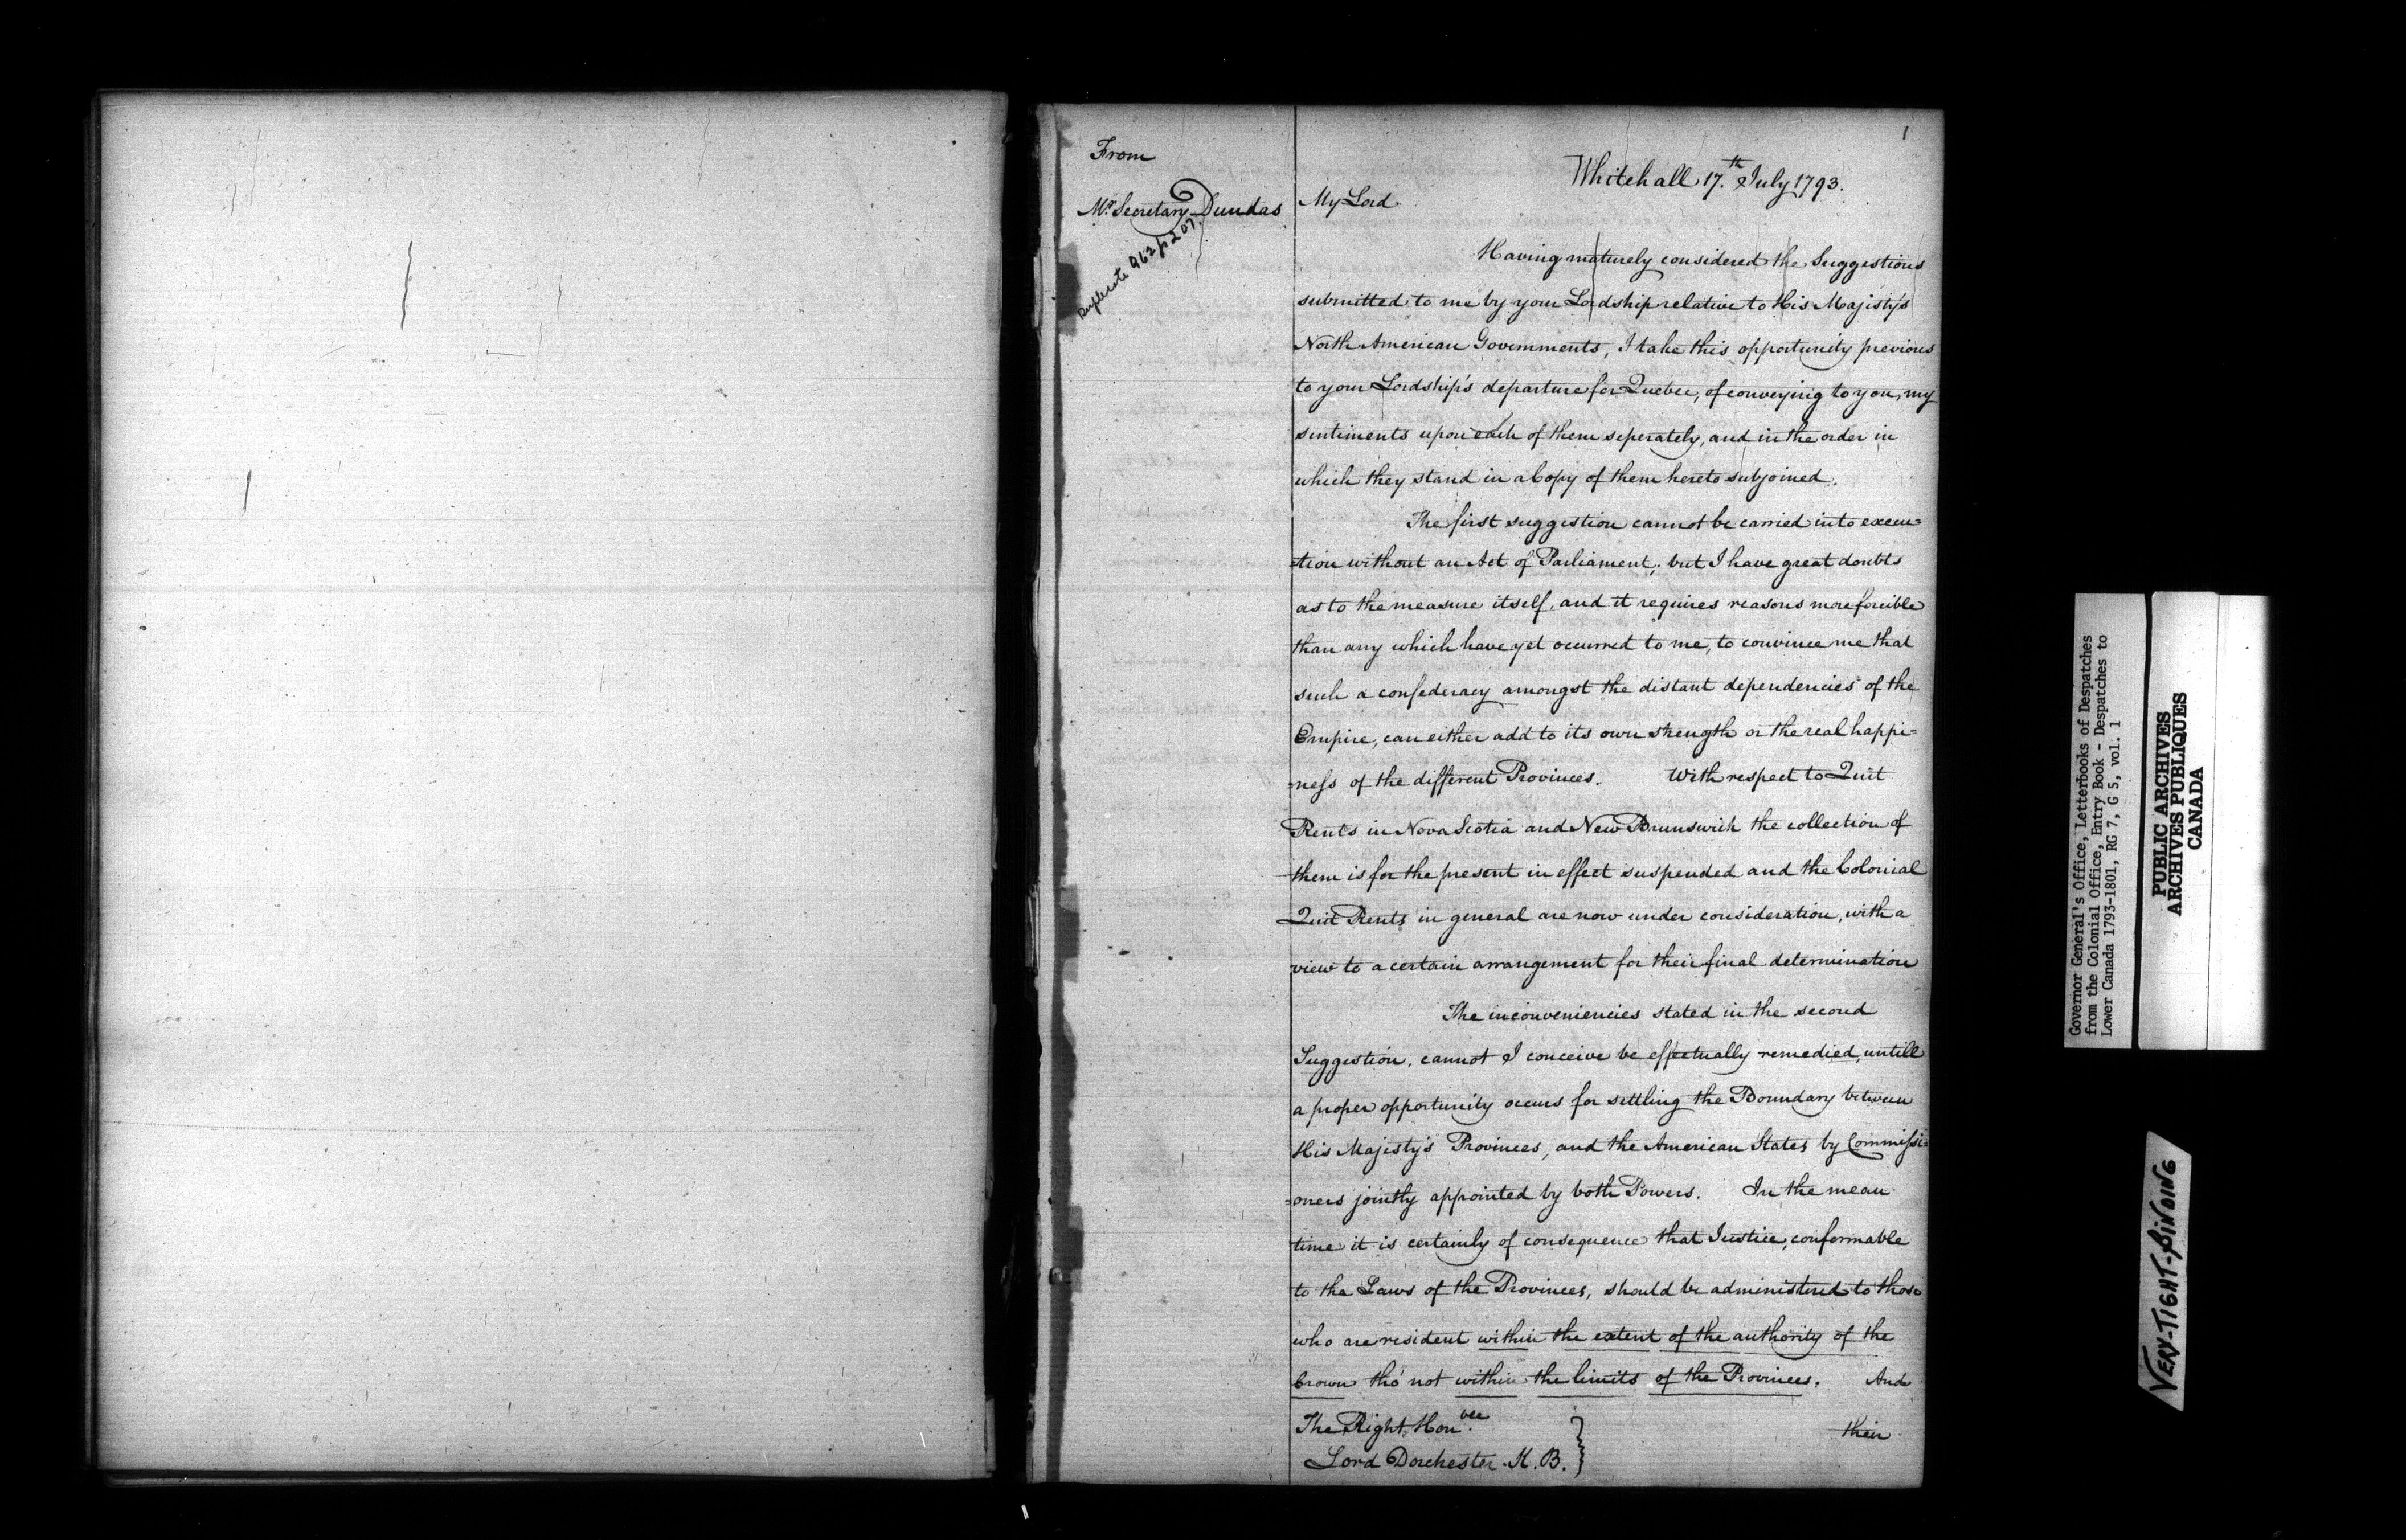 1
From
Mr. Secretary Dundas
Duplicate Q62 p207
Whitehall 17.th July 1793.
My Lord
Having maturely considered the Suggestions
submitted to me by your Lordship relative to His Majesty's
North American Governments, I take this opportunity previous
to your Lordship's departure for Quebec, of conveying to you, my
sentiments upon each of them seperately, and in the order in
which they stand in a Copy of them hereto subjoined.
The first suggestion cannot be carried into execu=
=tion without an Act of Parliament; but I have great doubts
as to the measure itself, and it requires reasons more forcible
than any which have yet occurred to me, to convince me that
such a confederacy amongst the distant dependencies of the
Empire, can either add to its own strength or the real happi=
=ness of the different Provinces. With respect to Quit
Rents in Nova Scotia and New Brunswick the collection of
them is for the present in effect suspended and the Colonial
Quit Rents in general are now under consideration, with a
view to a certain arrangement for their final determination
The inconveniencies stated in the second
Suggestion, cannot I conceive be effectually remedied, untill
a proper opportunity occurs for settling the Boundary between
His Majesty's Provinces, and the American States by Commissi=
=oners jointly appointed by both Powers. In the mean
time it is certainly of consequence that Justice, conformable
to the Laws of the Provinces, should be administered to those
who are resident within the extent of the authority of the
Crown tho' not within the limits of the Provinces. And
their
The Right Honble.
Lord Dorchester. K. B.
Governor General's Office, Letterbooks of Despatches
from the Colonial Office, Entry Book - Despatches to
Lower Canada 1793-1801, RG 7, G 5, vol. 1
PUBLIC ARCHIVES
ARCHIVES PUBLIQUES
CANADA
VERY-TIGHT-BINDING